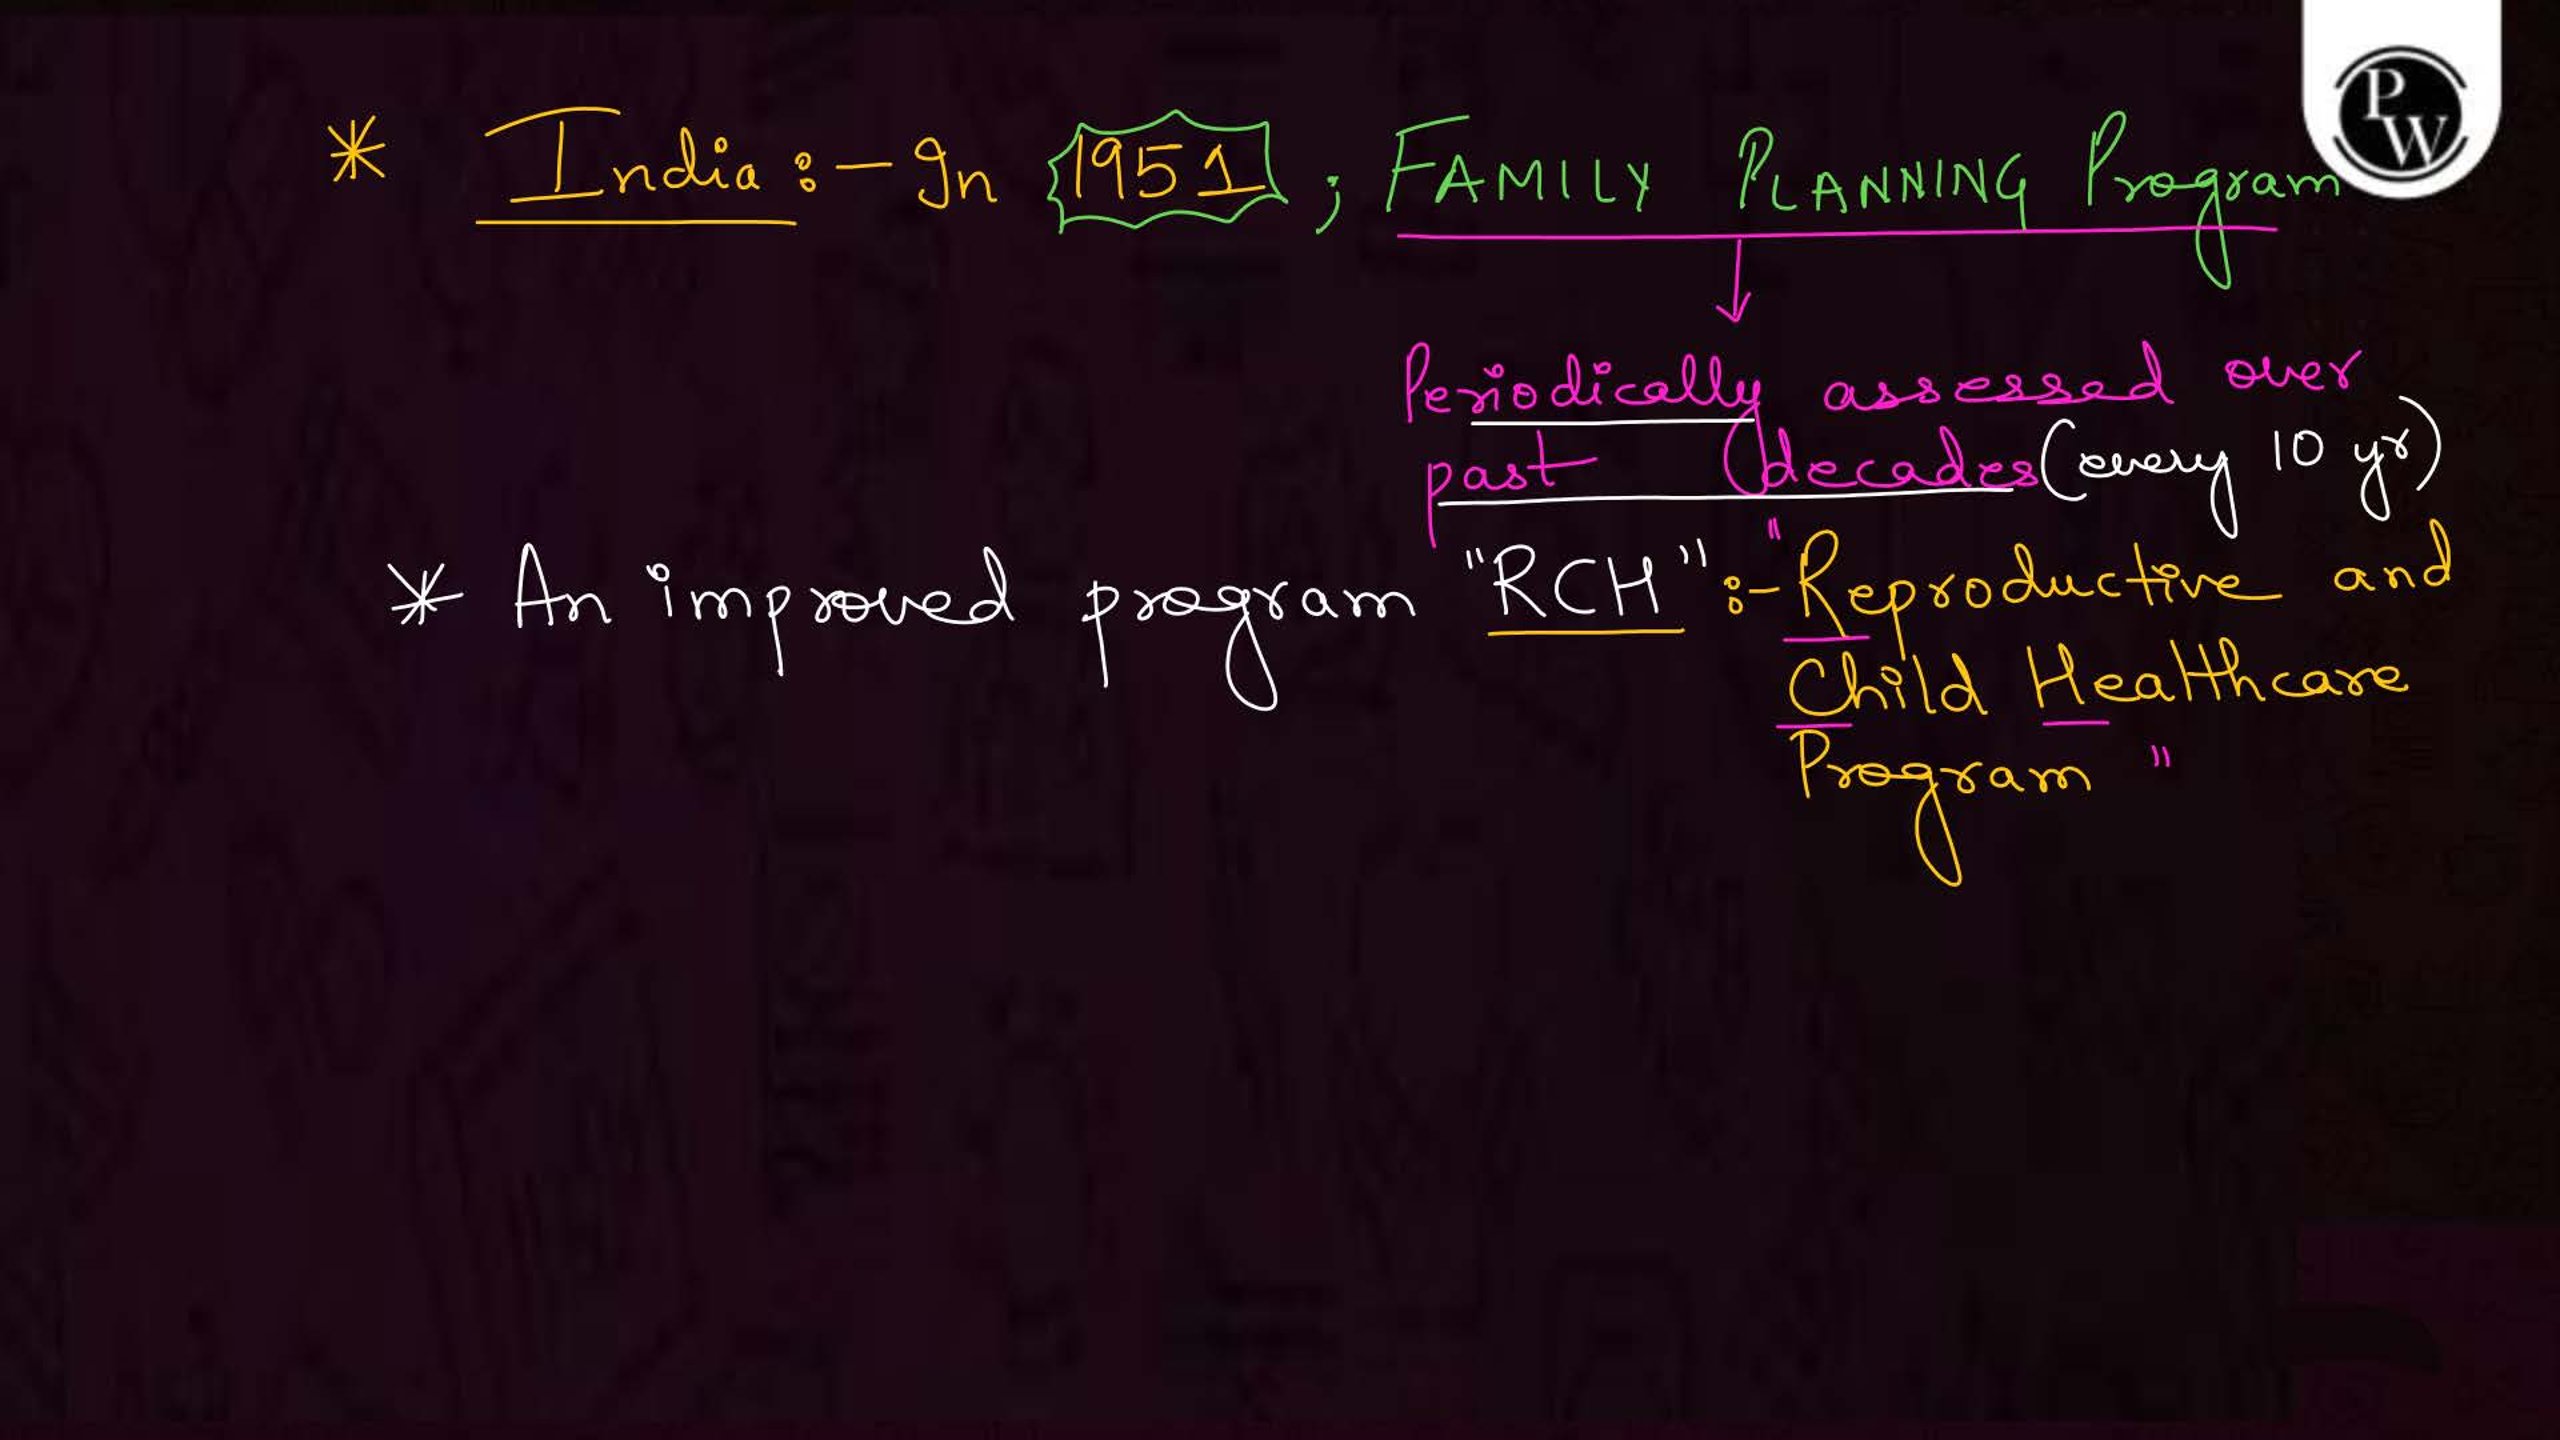 * India :- In 1951 ; FAMILY PLANNING Program
PW
Periodically assessed over
past decades (every 10 yr)
* An improved program "RCH" :- "Reproductive and
Child Healthcare
Program"